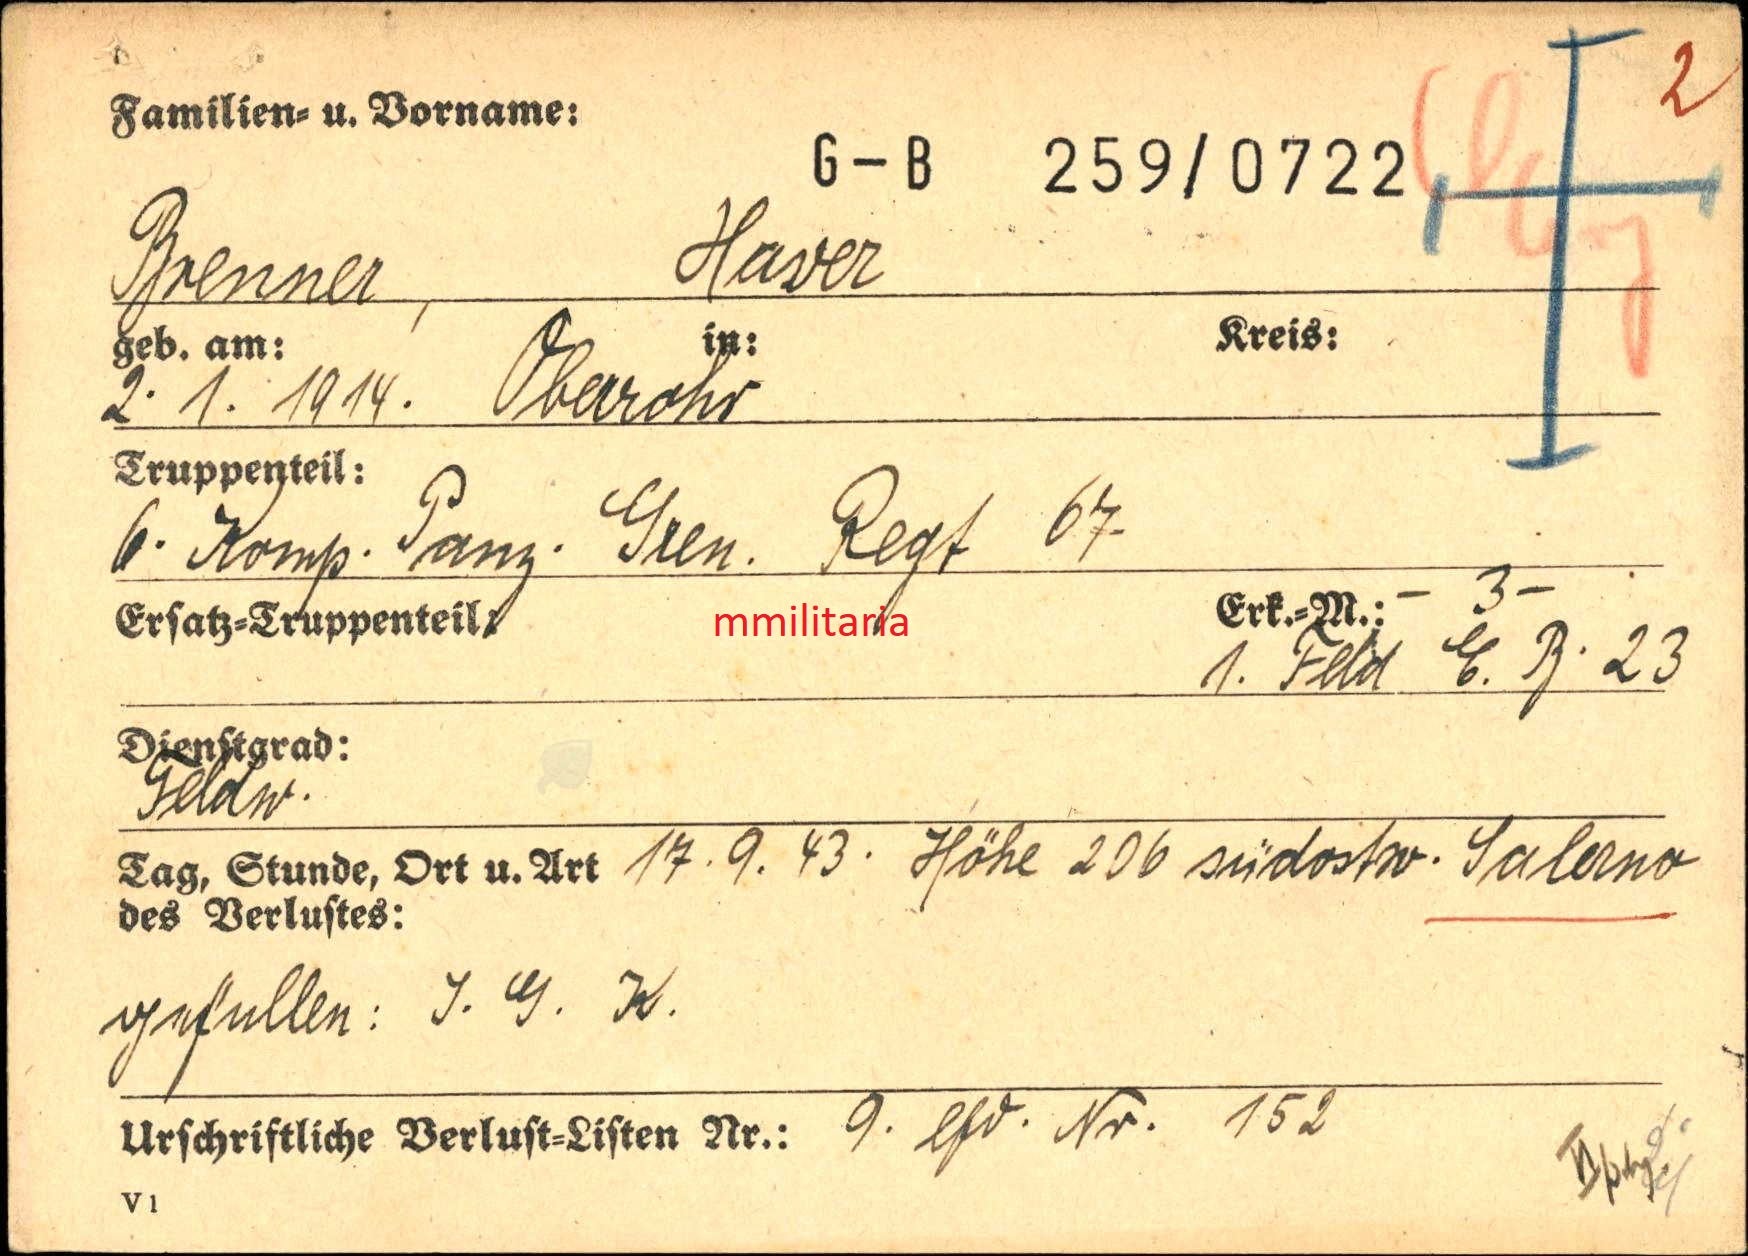 2
Familien- u. Vorname:
G-B 259/0722
Brenner, Xaver
geb. am: in: Kreis:
2. 1. 1914. Oberrohr
Truppenteil:
6. Komp. Panz. Gren. Regt 67.
Ersatz-Truppenteil: mmilitaria Erk.-M.: - 3 -
1. Feld E. B. 23
Dienstgrad:
Feldw.
Tag, Stunde, Ort u. Art 17. 9. 43. Höhe 206 südostw. Salerno
des Verlustes:
gefallen: I. G. K.
Urschriftliche Verlust-Listen Nr.: 9. lfd. Nr. 152
V 1